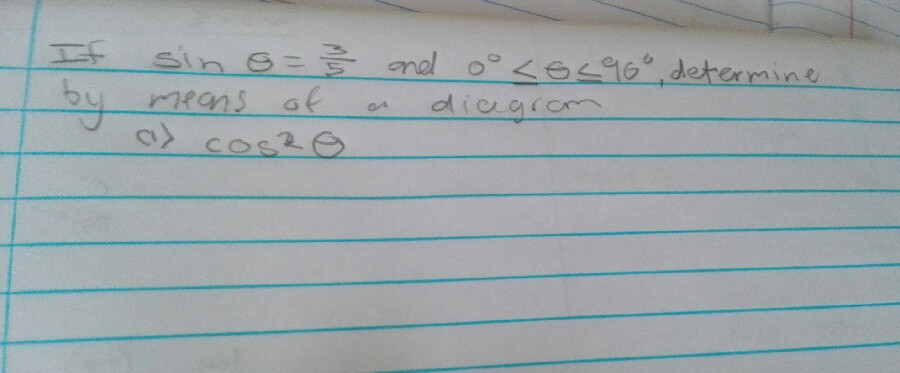 If sin θ = 3/5 and 0° ≤ θ ≤ 90°, determine
by means of a diagram
a) cos² θ